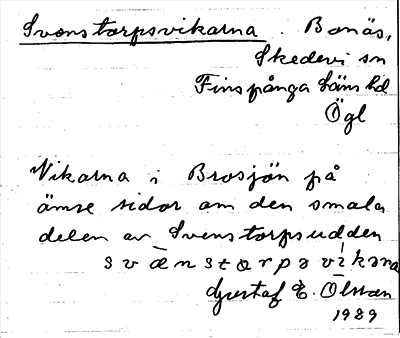 Svenstorpsvikarna. Bonäs,
Skedevi sn
Finspånga läns hd
Ögl
Vikarna i Brosjön på
ömse sidor om den smala
delen av Svenstorpsudden
svænstɔrpsvikəna
Gustaf E. Olsson
1989